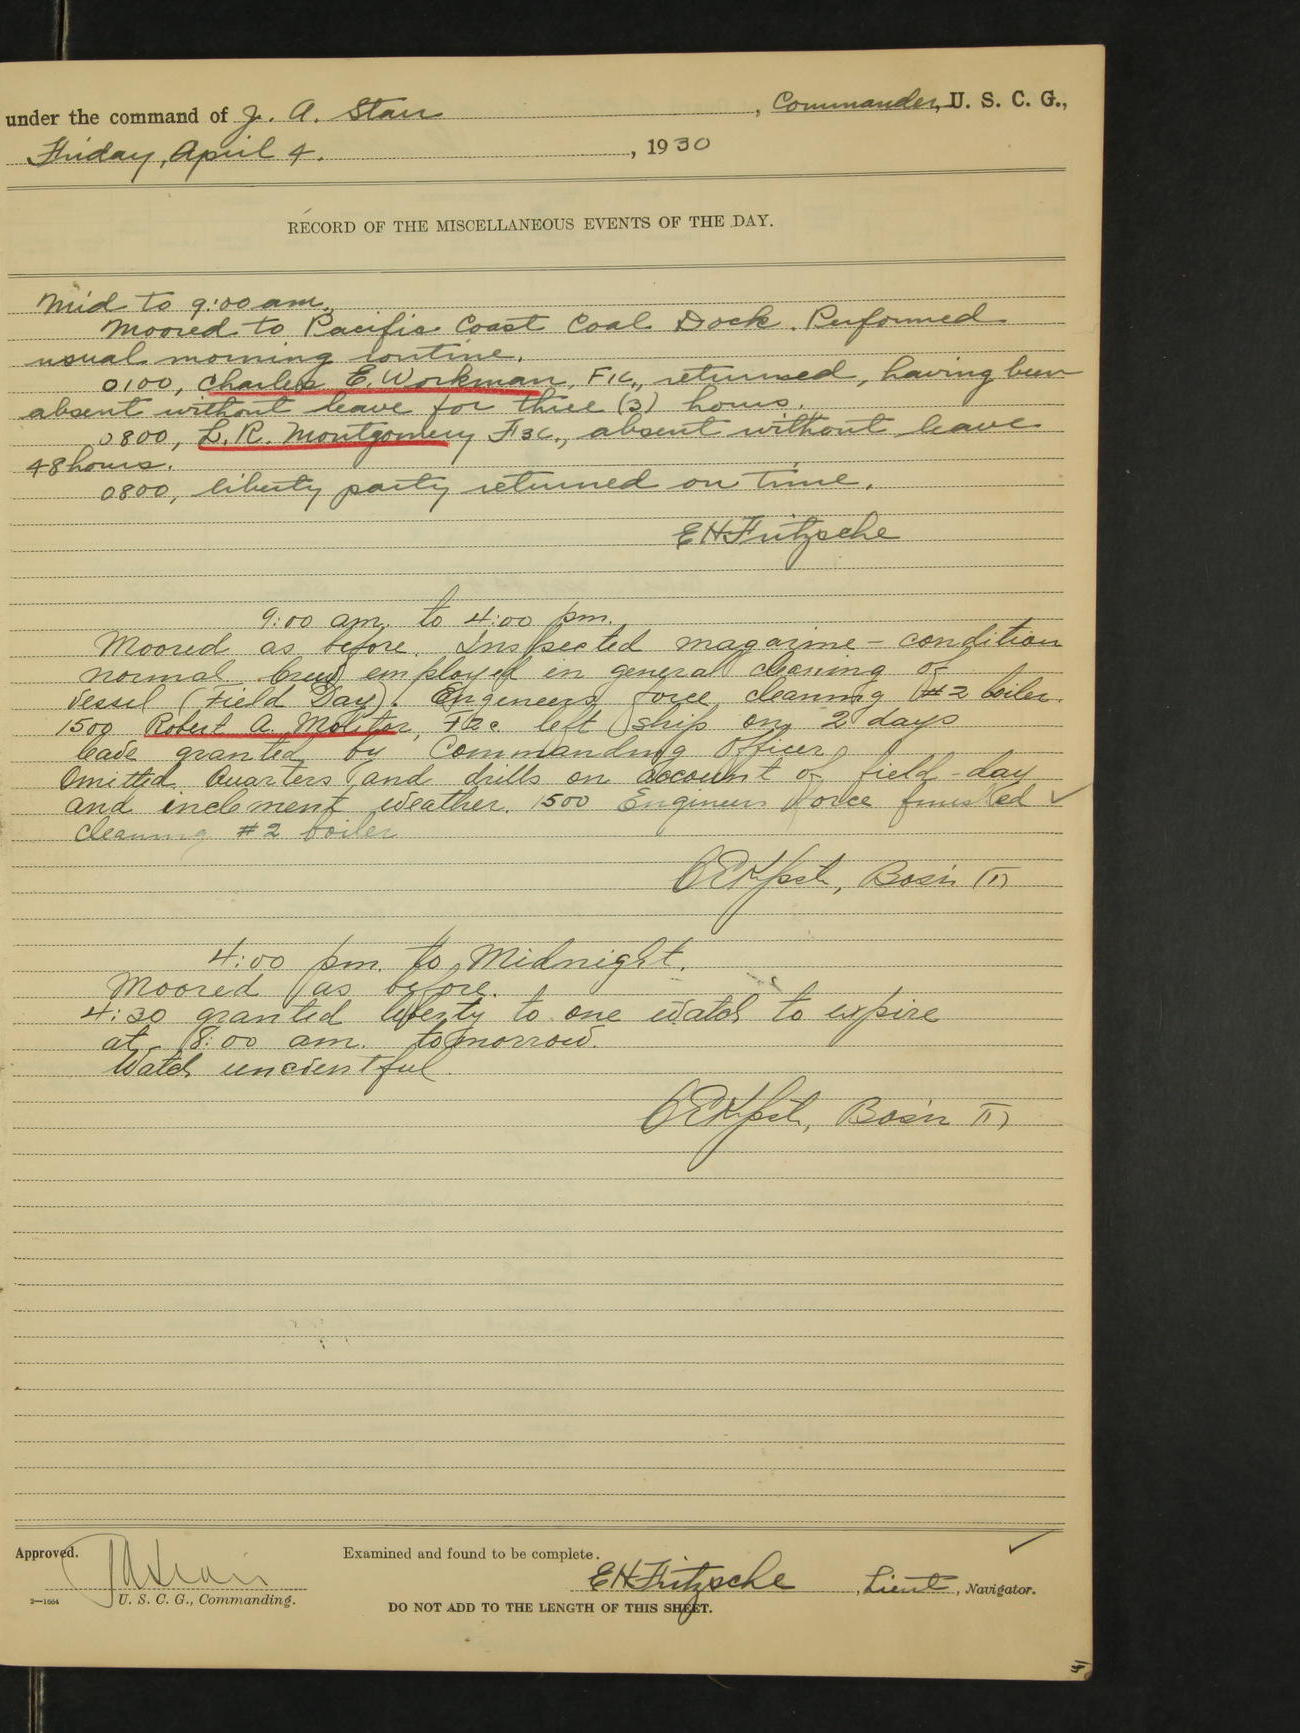 under the command of J. A. Starr, Commander, U. S. C. G.,
Friday, April 4., 1930
RECORD OF THE MISCELLANEOUS EVENTS OF THE DAY.
Mid to 9:00 am.
Moored to Pacific Coast Coal Dock. Performed
usual morning routine.
0100, Charles E. Workman, F1c., returned, having been
absent without leave for three (3) hours.
0800, L. R. Montgomery F3c., absent without leave
48 hours.
0800, liberty party returned on time.
E H Fritzsche
9:00 am. to 4:00 pm.
Moored as before. Inspected magazine - condition
normal. Crew employed in general cleaning of
vessel (Field Day). Engineers force cleaning #2 boiler.
1500 Robert A. Molitor, F2c left ship on 2 days
leave granted by Commanding Officer
Omitted Quarters and drills on account of field-day
and inclement weather. 1500 Engineers force finished ✓
cleaning #2 boiler
Bos'n (T)
4:00 pm. to Midnight.
Moored as before.
4:30 granted liberty to one watch to expire
at 8:00 am. tomorrow.
Watch uneventful.
Bos'n (T)
Approved. Examined and found to be complete.
E H Fritzsche, Lieut, Navigator.
2—1664 U. S. C. G., Commanding.
DO NOT ADD TO THE LENGTH OF THIS SHEET.